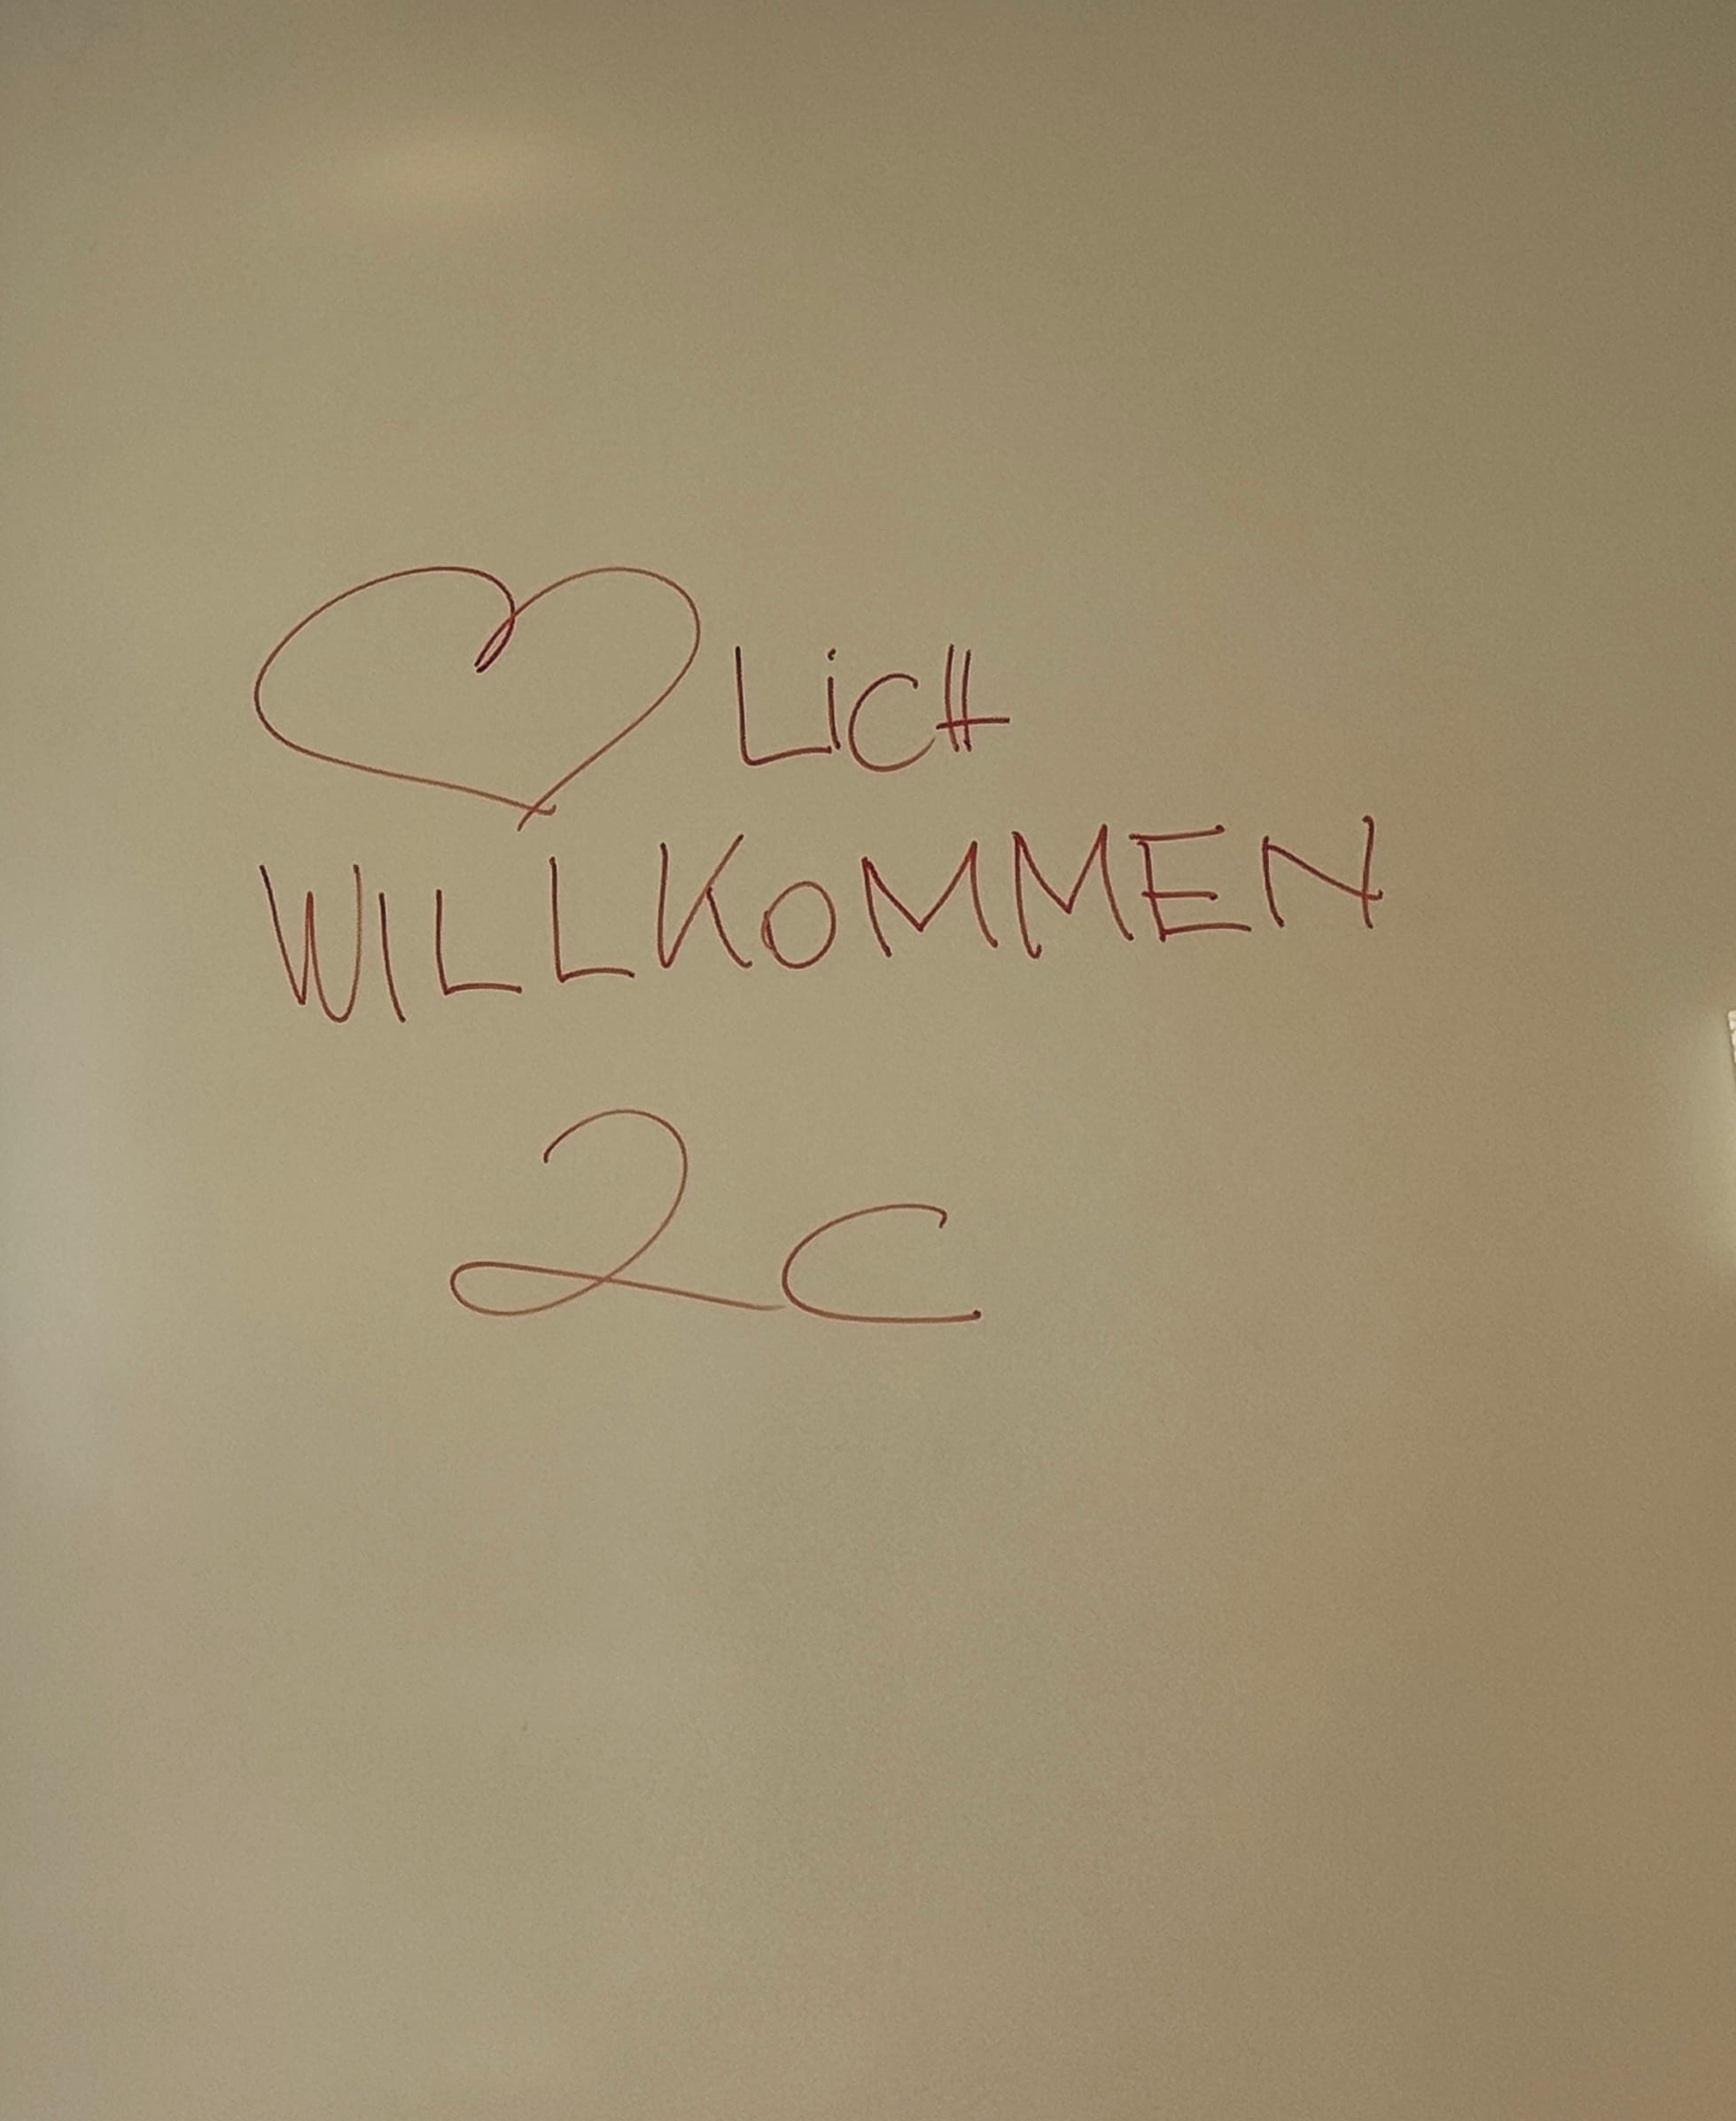 ♡LiCH
WILLKOMMEN
2C